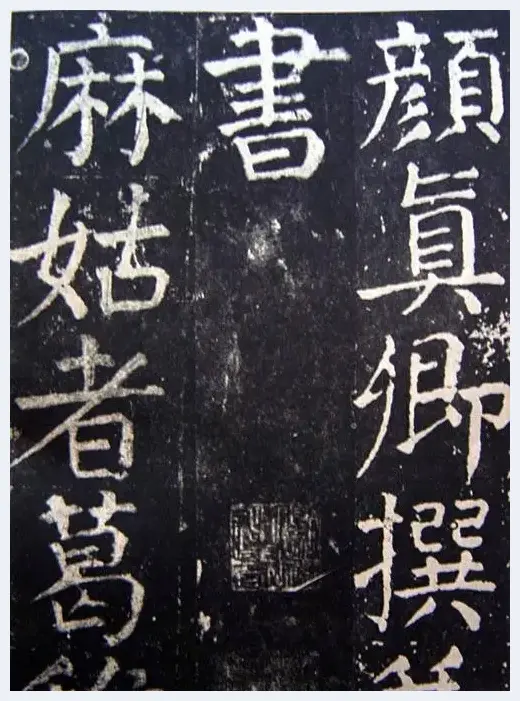 顔真卿撰
書
麻姑者葛